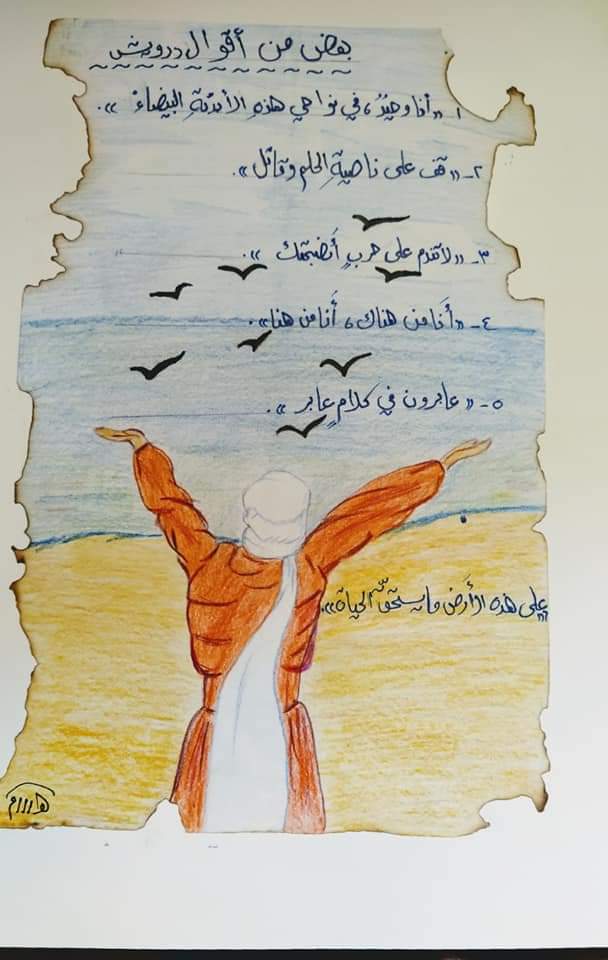 بعض من أقوال درويش
١- «أنا وحيدٌ، في نواحي هذهِ الأبديّةِ البيضاءْ».
٢- «قف على ناصيةِ الحلم وقاتل».
٣- «لا تندم على حربٍ أنضجتك».
٤- «أَنا من هناك، أَنا من هنا».
٥- «عابرون في كلامٍ عابر».
«على هذه الأَرض ما يستحقّ الحياة».